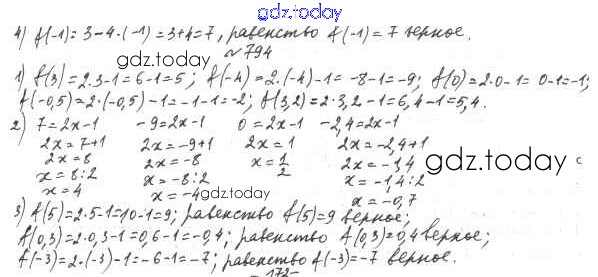 gdz.today
4) f(-1) = 3-4·(-1) = 3+4=7, равенство f(-1) = 7 верное.
gdz.today
№794
1) f(3) = 2·3-1=6-1=5; f(-4) = 2·(-4)-1= -8-1=-9; f(0)=2·0-1= 0-1=-1;
f(-0,5)=2·(-0,5)-1=-1-1=-2; f(3,2)=2·3,2-1=6,4-1=5,4.
2) 7=2x-1 -9=2x-1 0=2x-1 -2,4=2x-1
2x=7+1 2x=-9+1 2x=1 2x=-2,4+1
2x=8 2x=-8 x=1/2 2x=-1,4
x=8:2 x=-8:2 x=-1,4:2
x=4 x=-4 x=-0,7
gdz.today
gdz.today
3) f(5)=2·5-1=10-1=9; равенство f(5)=9 верное;
f(0,3)=2·0,3-1=0,6-1=-0,4; равенство f(0,3)=0,4 верное;
f(-3)=2·(-3)-1=-6-1=-7; равенство f(-3)=-7 верное.
-172-
gdz.today